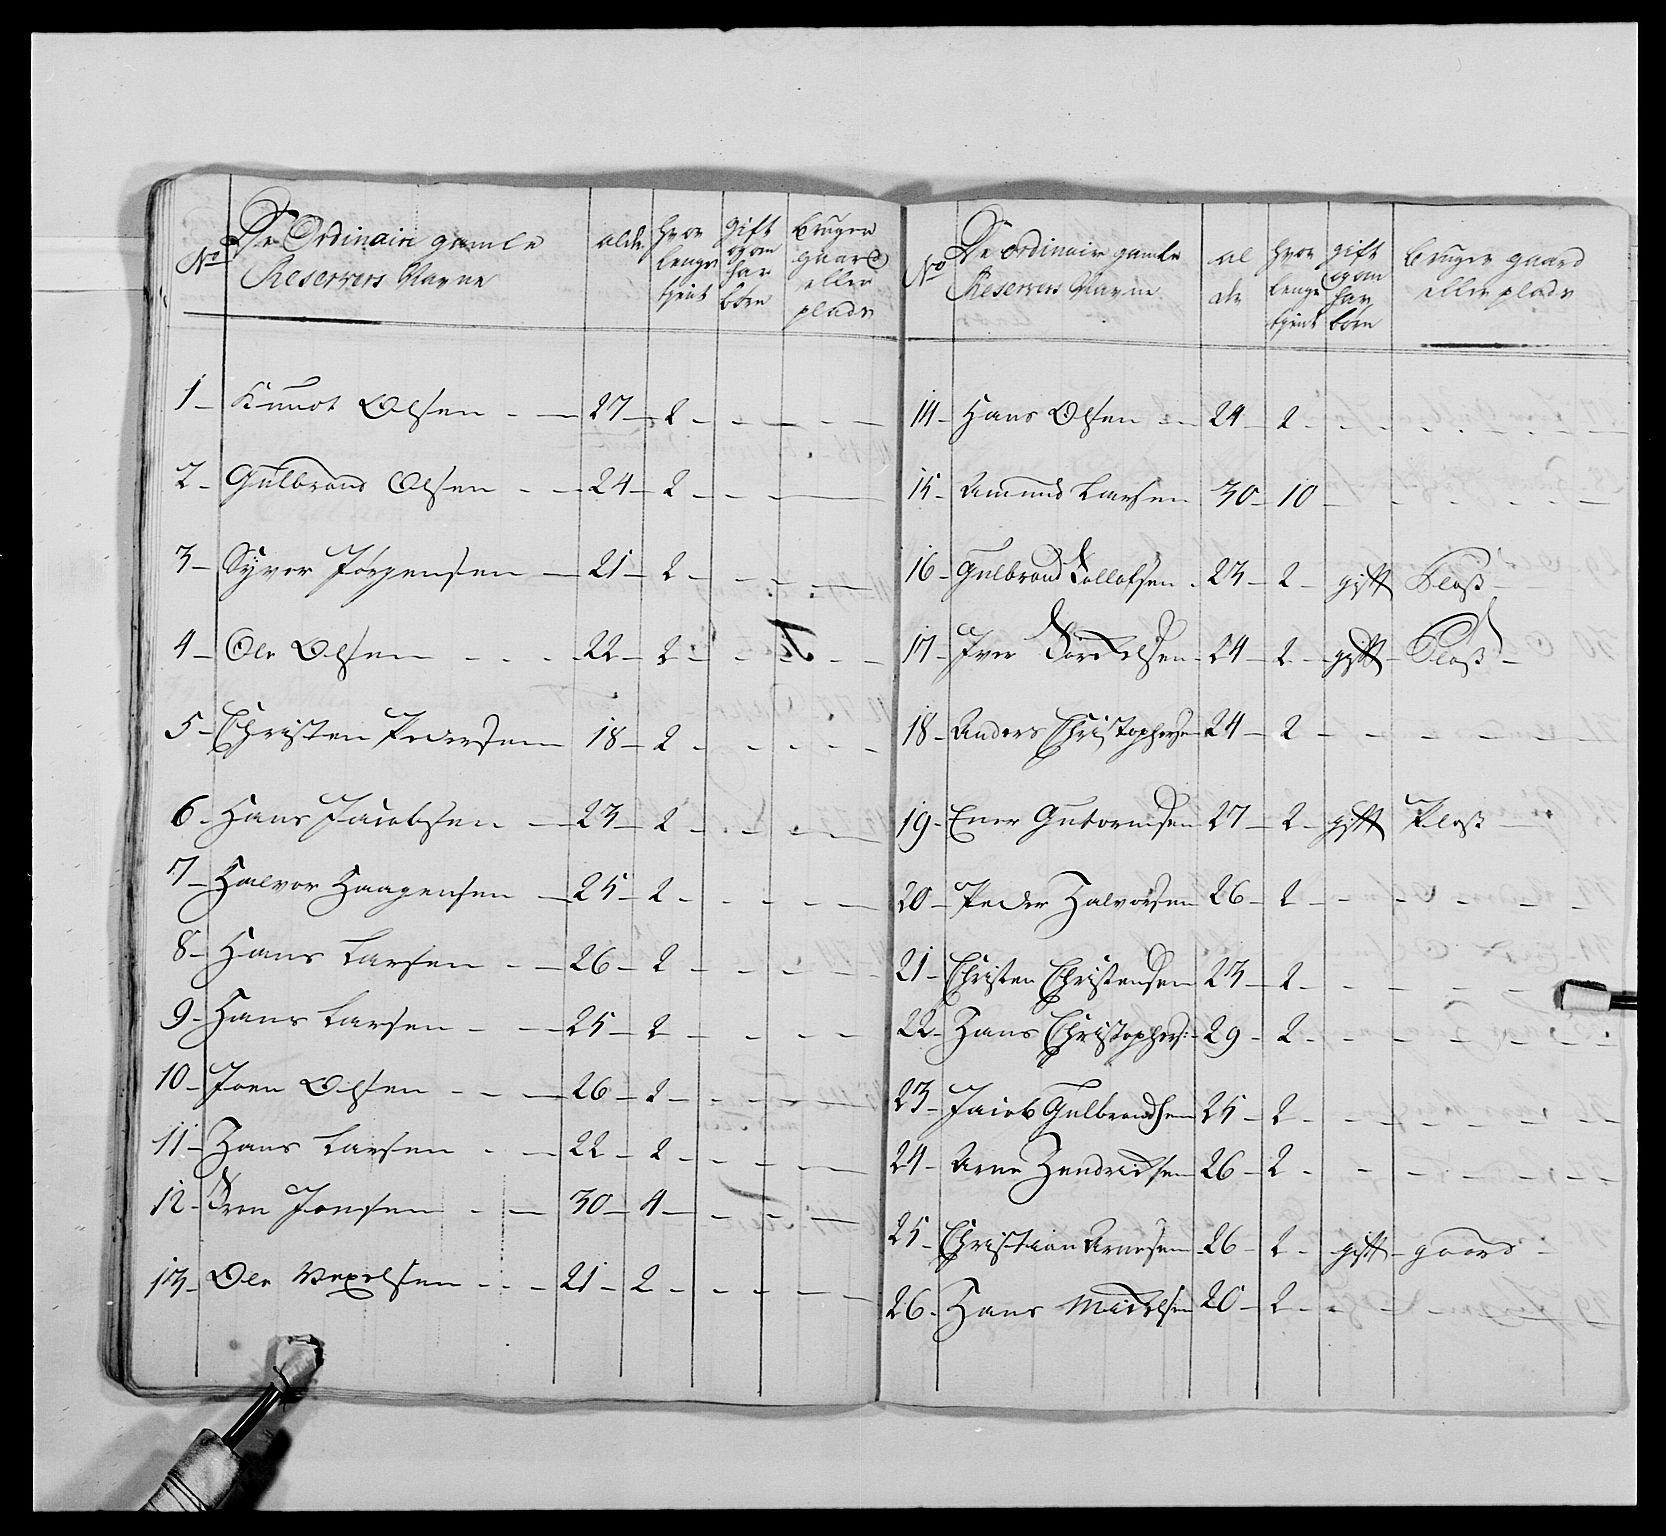 No De Ordinaire gamle Reservers Navne alder hvor lenge tient gift og om har børn bruger gaard eller plads
1 - Knudt Olsen - - 27 - 2 - - - - -
2 - Gulbrand Olsen - - 24 - 2 - - - -
3 - Syver Jörgensen - 21 - 2 - - - -
4 - Ole Olsen - - - 22 - 2 - - - - -
5 - Christen Pedersen 18 - 2 - - - - -
6 - Hans Jacobsen - 23 - 2 - - - -
7 - Halvor Haagensen - 25 - 2 - - - - -
8 - Hans Larsen - - 26 - 2 - - - - -
9 - Hans Larsen - - 25 - 2 - - - -
10 - Joen Olsen - - - 26 - 2 - - - - -
11 - Hans Larsen - - 22 - 2 - - - -
12 - Iven Jonsen - - 30 - 4 - - - -
13 - Ole - - - 21 - 2 - - - - -
No De ordinaire gamle Reservers Navne alder hvor lenge tient gift og om har børn bruger gaard eller plads
14 - Hans Olsen - - 24 - 2 - - - - - -
15 - Amund Larsen 30 - 10 - - - - - -
16 - Gulbrand Tollofsen - 23 - 2 - gift Plass -
17 - Iver - 24 - 2 - gift - Plass -
18 - Anders Christophersen 24 - 2 - - - - - -
19 - Ener Gutormsen 27 - 2 - gift Plass -
20 - Peder Halvorsen 26 - 2 - - - - - -
21 - Christen Christensen 23 - 2 - - - - -
22 - Hans Christophers: - 29 - 2 - - - - - -
23 - Jacob Gulbrandsen 25 - 2 - - - - - -
24 - Arne Hendrichsen 26 - 2 - - - - - -
25 - Christian Arnesen 26 - 2 - gift - gaard -
26 - Hans Michelsen 20 - 2 - - - -